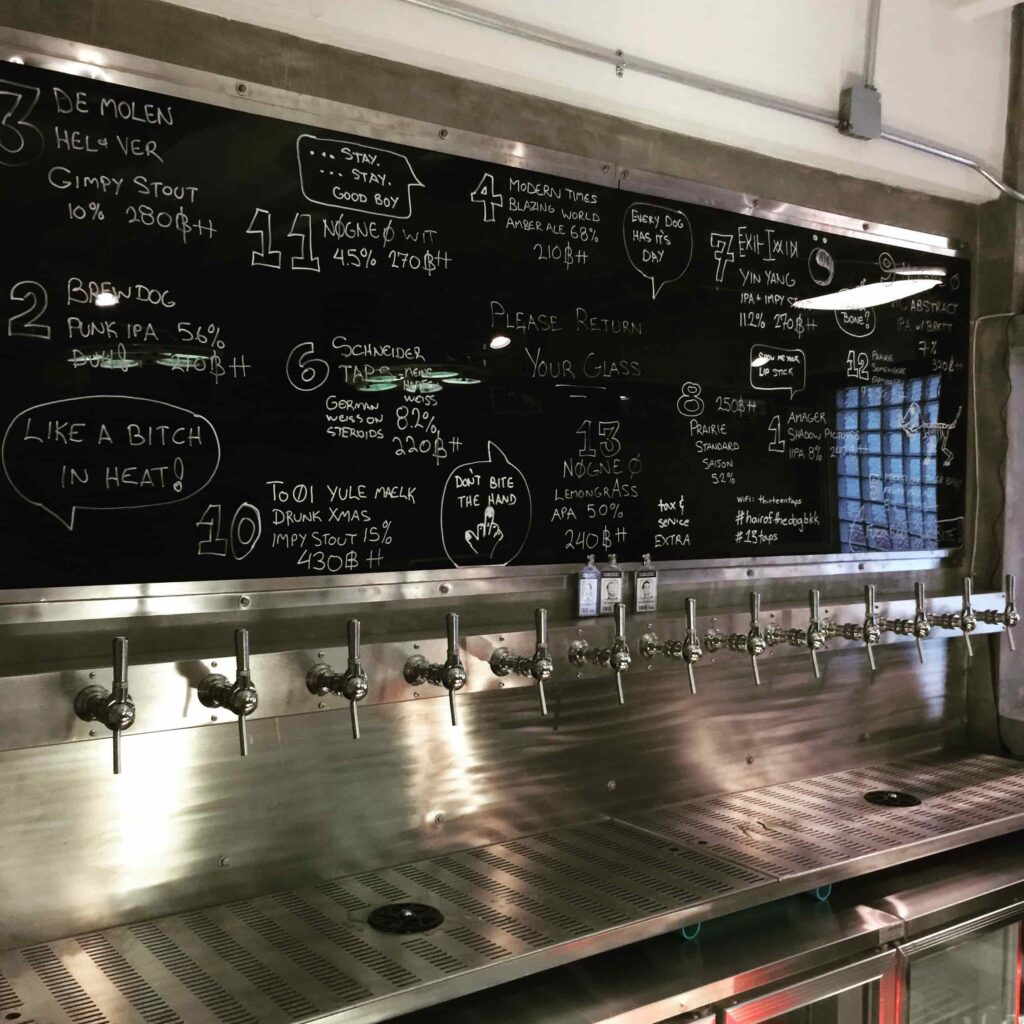 3
DE MOLEN
HEL & VER
GIMPY STOUT
10% 280฿
... STAY.
... STAY.
GOOD BOY
11 NØGNE Ø WIT
4.5% 270฿
4 MODERN TIMES
BLAZING WORLD
AMBER ALE 6.8%
210฿
EVERY DOG
HAS ITS
DAY
7
YIN YANG
IPA + IMPY
11.2% 270฿
BONE?
ABSTRACT
IPA W/BRETT
7%
320฿
2 BREWDOG
PUNK IPA 5.6%
210฿
LIKE A BITCH
IN HEAT!
6 SCHNEIDER
WEISS
GERMAN
WEISS ON
STEROIDS
8.2%
220฿
PLEASE RETURN
YOUR GLASS
SHOW ME YOUR
LIP STICK
12 PRAIRIE
SOMEWHERE
8 250฿
PRAIRIE
STANDARD
SAISON
5.2%
1 AMAGER
SHADOW PICTURES
IIPA 8%
10 TO ØL YULE MAELK
DRUNK XMAS
IMPY STOUT 15%
430฿
DON'T BITE
THE HAND
13
NØGNE Ø
LEMONGRASS
APA 5.0%
240฿
tax &
service
EXTRA
WIFI: thirteentaps
#hairofthedogbkk
#13taps